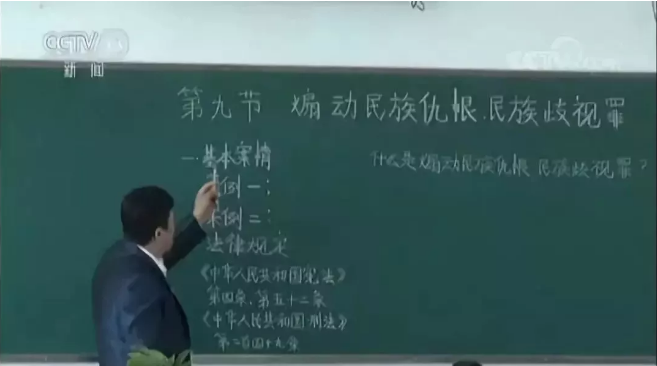 CCTV 13
新闻
CCTV
第九节 煽动民族仇恨、民族歧视罪
一.基本案情
什么是煽动民族仇恨、民族歧视罪？
案例一：
案例二：
法律规定
《中华人民共和国宪法》
第四条、第五十二条
《中华人民共和国刑法》
第二百四十九章